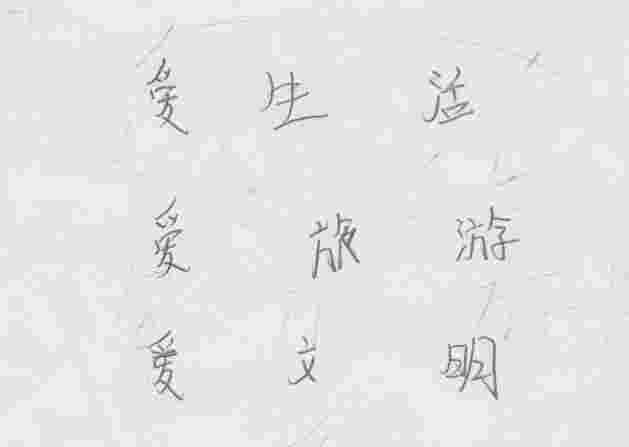 爱生活
爱旅游
爱文明